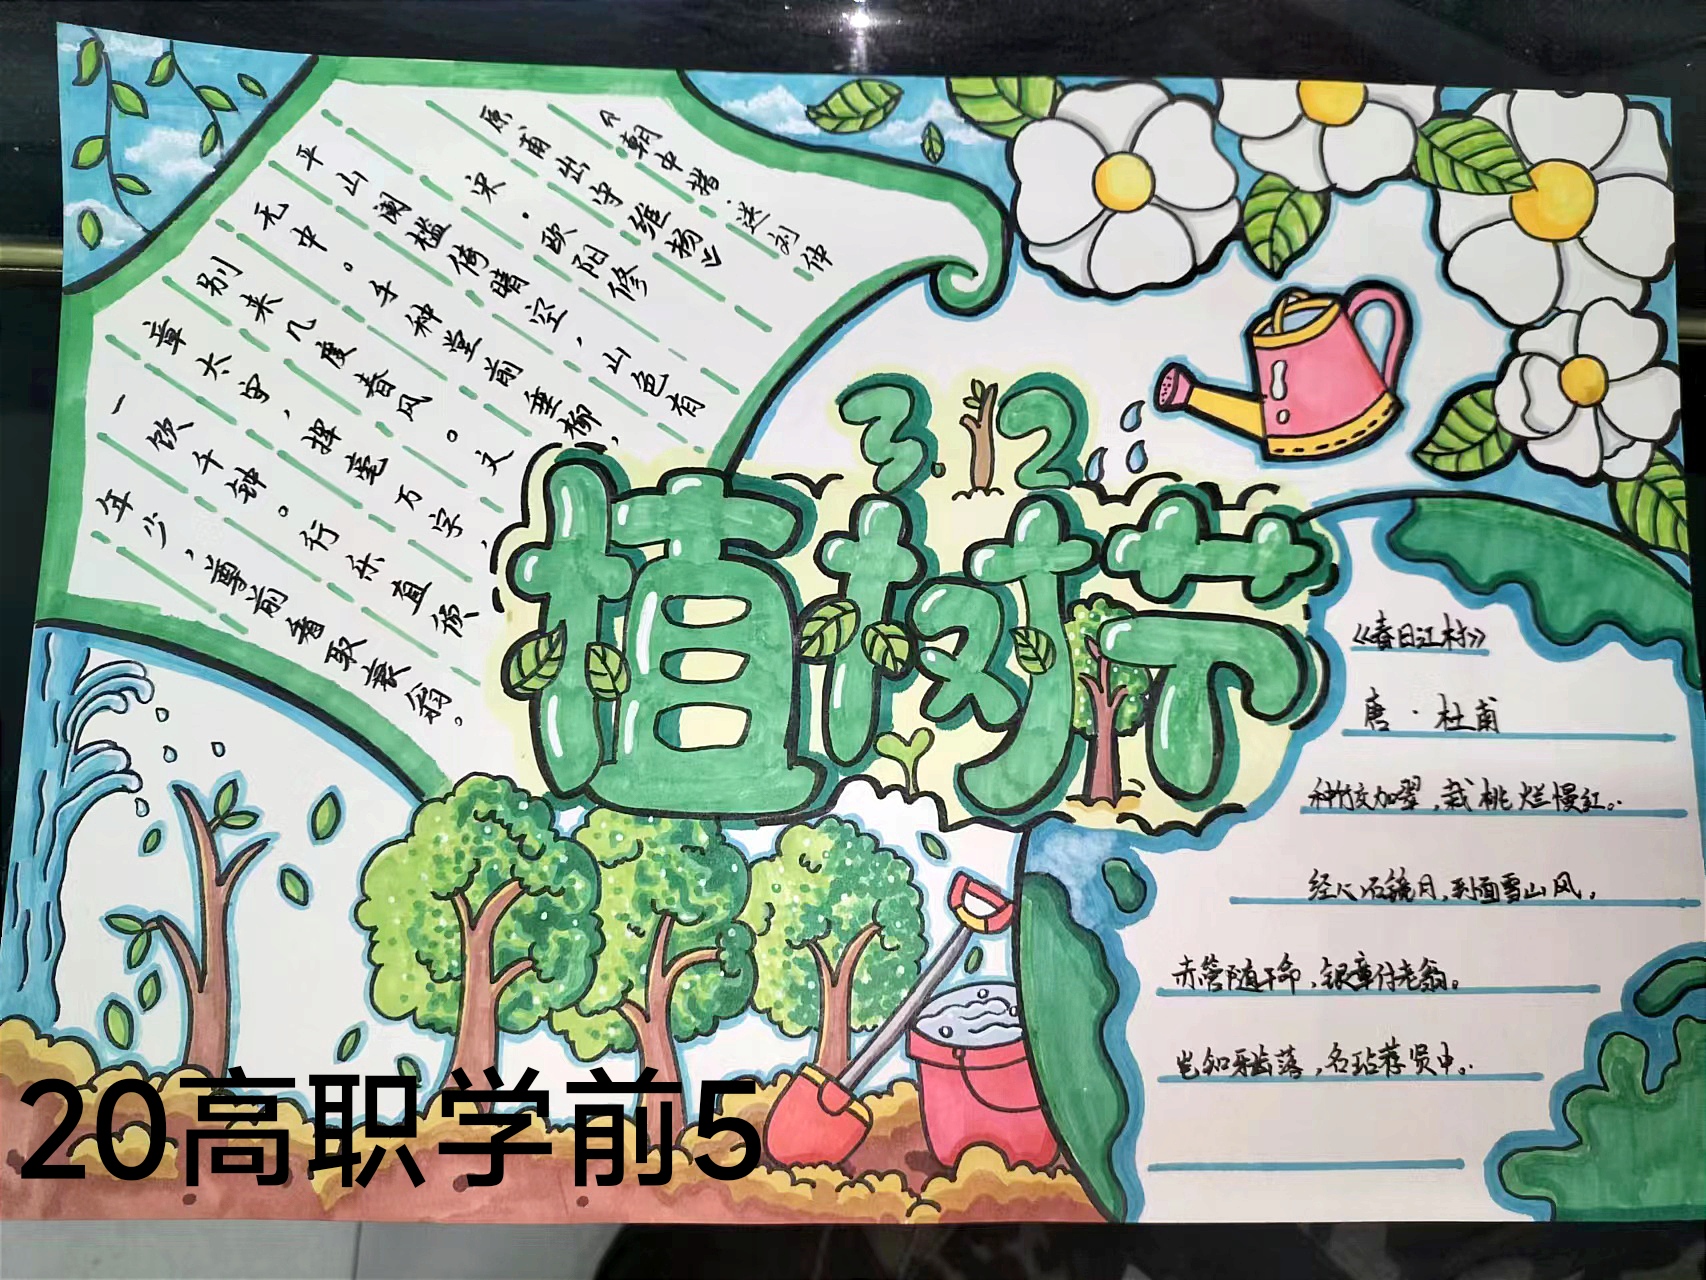 《朝中措·送刘仲
原甫出守维扬》
宋·欧阳修
平山阑槛倚晴空，山色有
无中。手种堂前垂柳，
别来几度春风。文
章太守，挥毫万字，
一饮千钟。行乐直须
年少，尊前看取衰翁。
3.12
植树节
《春日江村》
唐·杜甫
种竹交加翠，栽桃烂慢红。
经心石镜月，到面雪山风，
赤管随王命，银章付老翁。
岂知牙齿落，名玷荐贤中。
20高职学前5